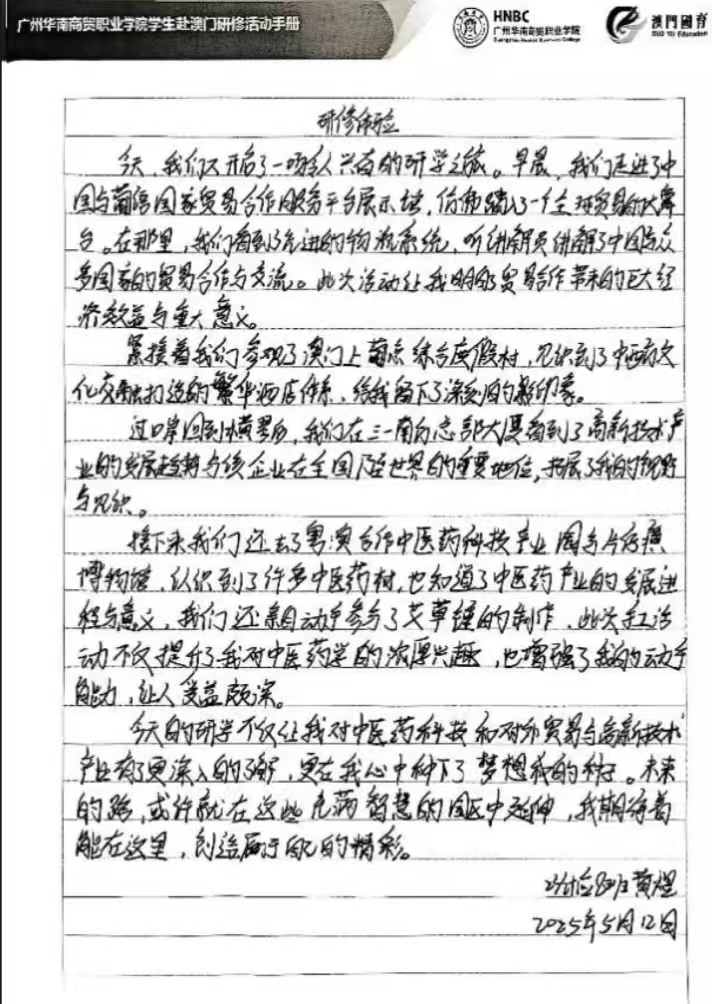 广州华南商贸职业学院学生赴澳门研修活动手册
HNBC
广州华南商贸职业学院
澳門國育
GUO YU Education
研修体验
今天,我们又开启了一场令人兴奋的研学之旅。早晨,我们走进了中
国与葡语国家贸易合作服务平台展示馆,仿佛踏入了一个全球贸易的大舞
台。在那里,我们看到了先进的物流系统,听讲解员讲解了中国与众
多国家的贸易合作与交流。此次活动让我明白了贸易合作带来的巨大经
济效益与重大意义。
紧接着我们参观了澳门上葡京综合度假村,见识到了中西方文
化交融打造的繁华酒店体系,给我留下了深刻的影印象。
过口岸回到横琴后,我们在三一南方总部大厦看到了高新技术产
业的发展趋势与该企业在全国乃至世界的重要地位,拓展了我的视野
与见识。
接下来我们还去了粤澳合作中医药科技产业园与片仔癀
博物馆,认识到了许多中医药材,也知道了中医药产业的发展进
程与意义,我们还亲自动手参与了艾草锤的制作,此次手工活
动不仅提升了我对中医药学的浓厚兴趣,也增强了我的动手
能力,让人受益颇深。
今天的研学不仅让我对中医药科技和对外贸易与高新技术
产业有了更深入的了解,更在我心中种下了梦想我的种子。未来
的路,或许就在这些充满智慧的园区中延伸,我期待着
能在这里,创造属于自己的精彩。
班黄煜
2025年5月12日